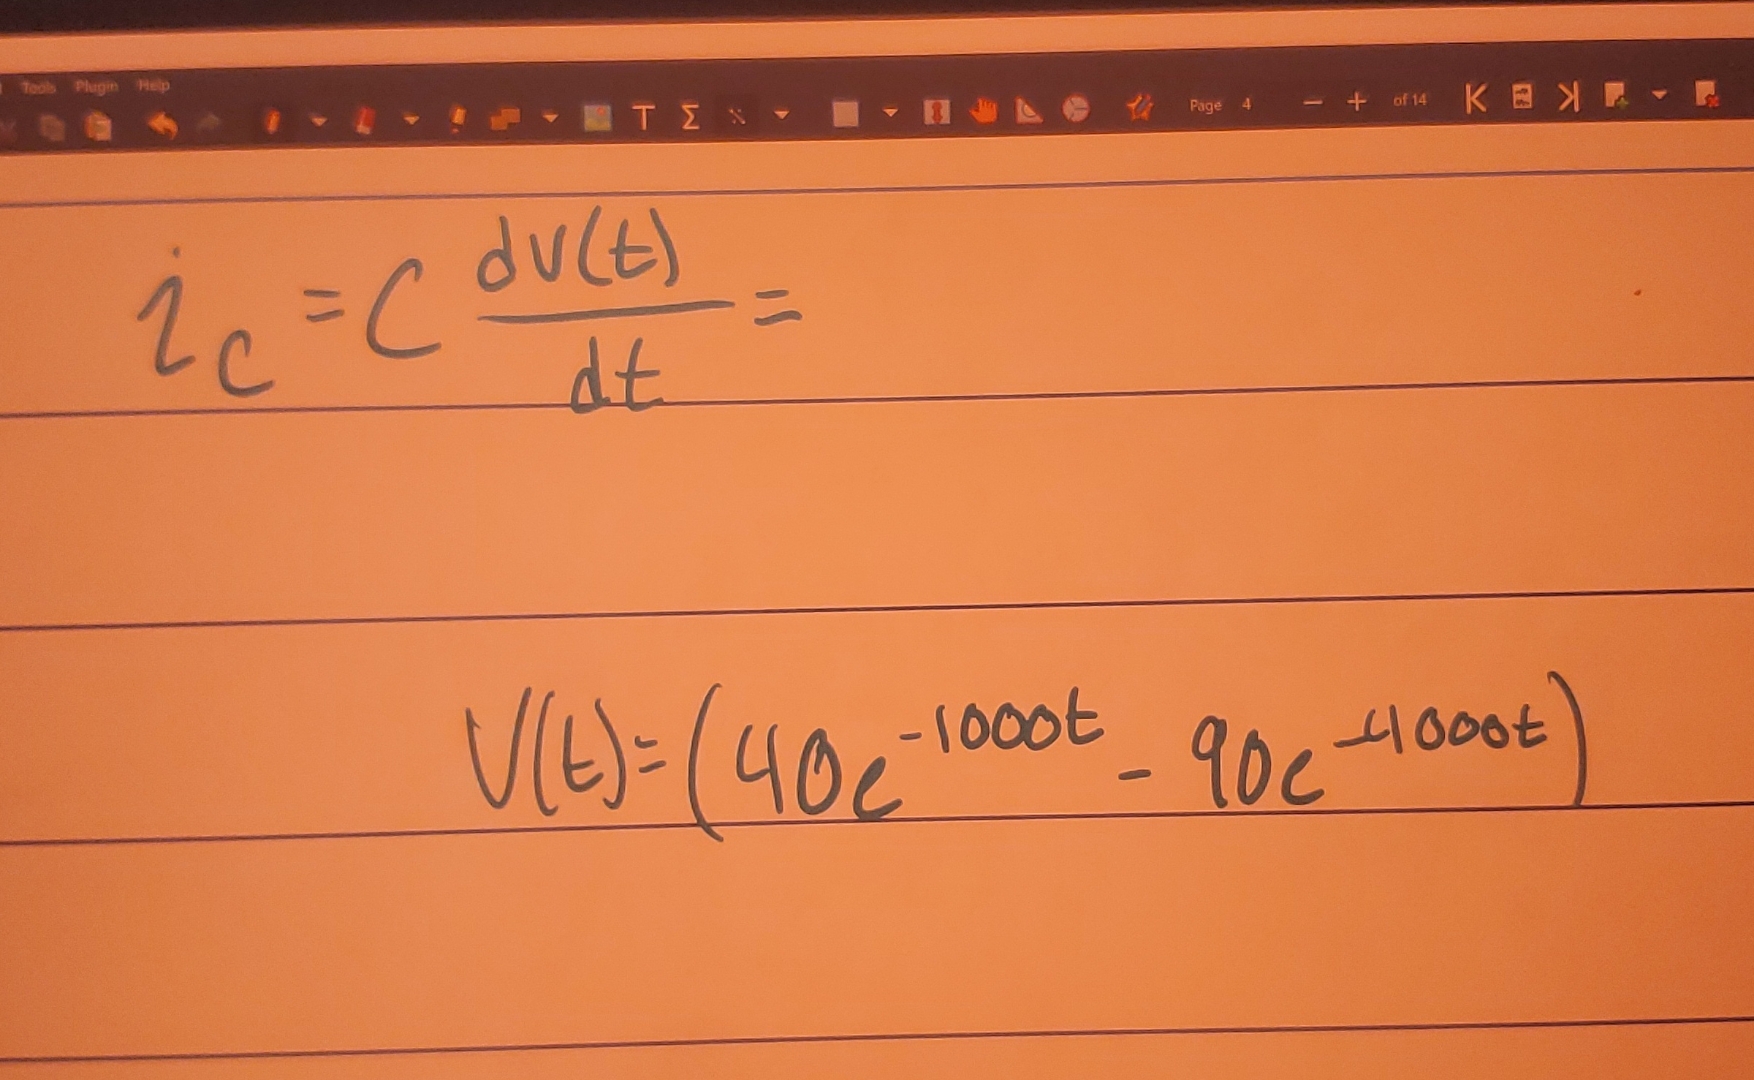 Tools Plugin Help
T Σ Page 4 of 14
i_c = C dv(t)/dt =
V(t) = (40e^-1000t - 90e^-4000t)